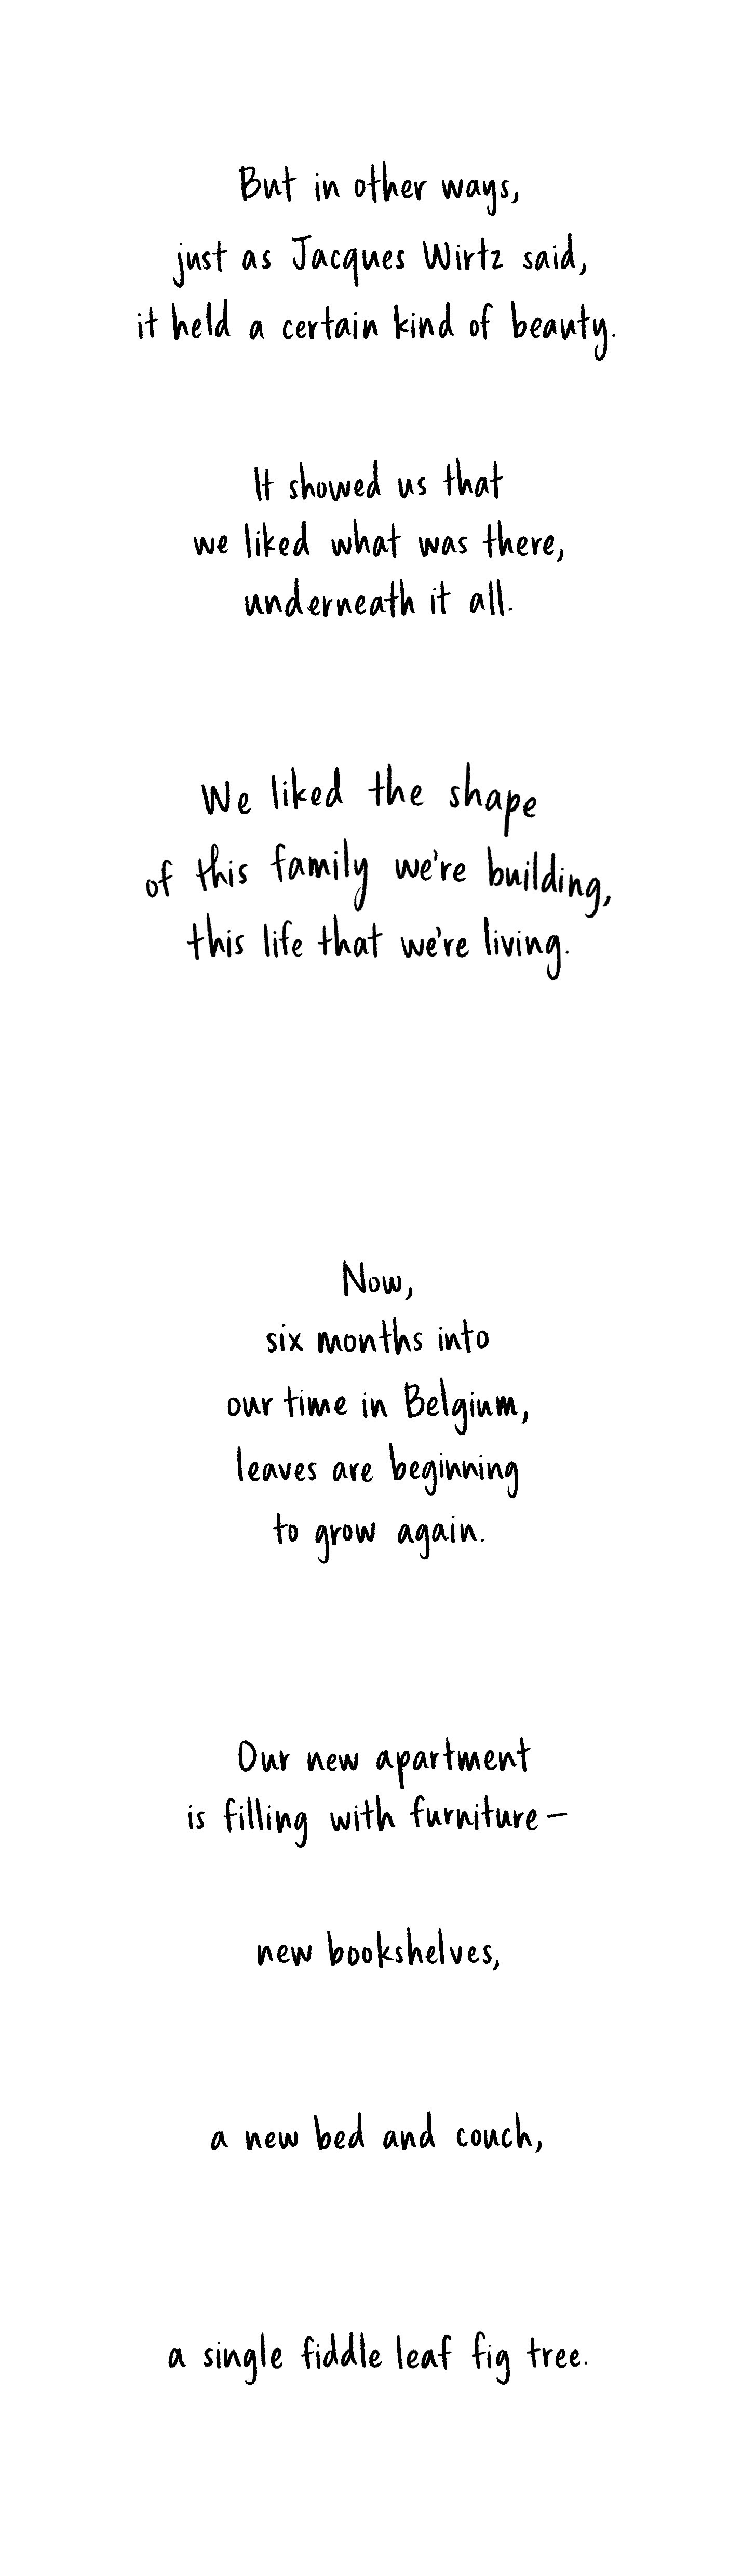 But in other ways,
just as Jacques Wirtz said,
it held a certain kind of beauty.
It showed us that
we liked what was there,
underneath it all.
We liked the shape
of this family we're building,
this life that we're living.
Now,
six months into
our time in Belgium,
leaves are beginning
to grow again.
Our new apartment
is filling with furniture–
new bookshelves,
a new bed and couch,
a single fiddle leaf fig tree.